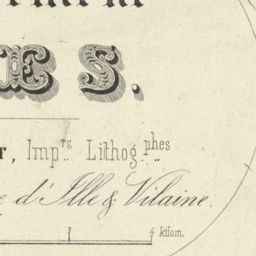 Œ S.
r, Imp.rs Lithog.phes
e d'Ille & Vilaine.
4 kilom.